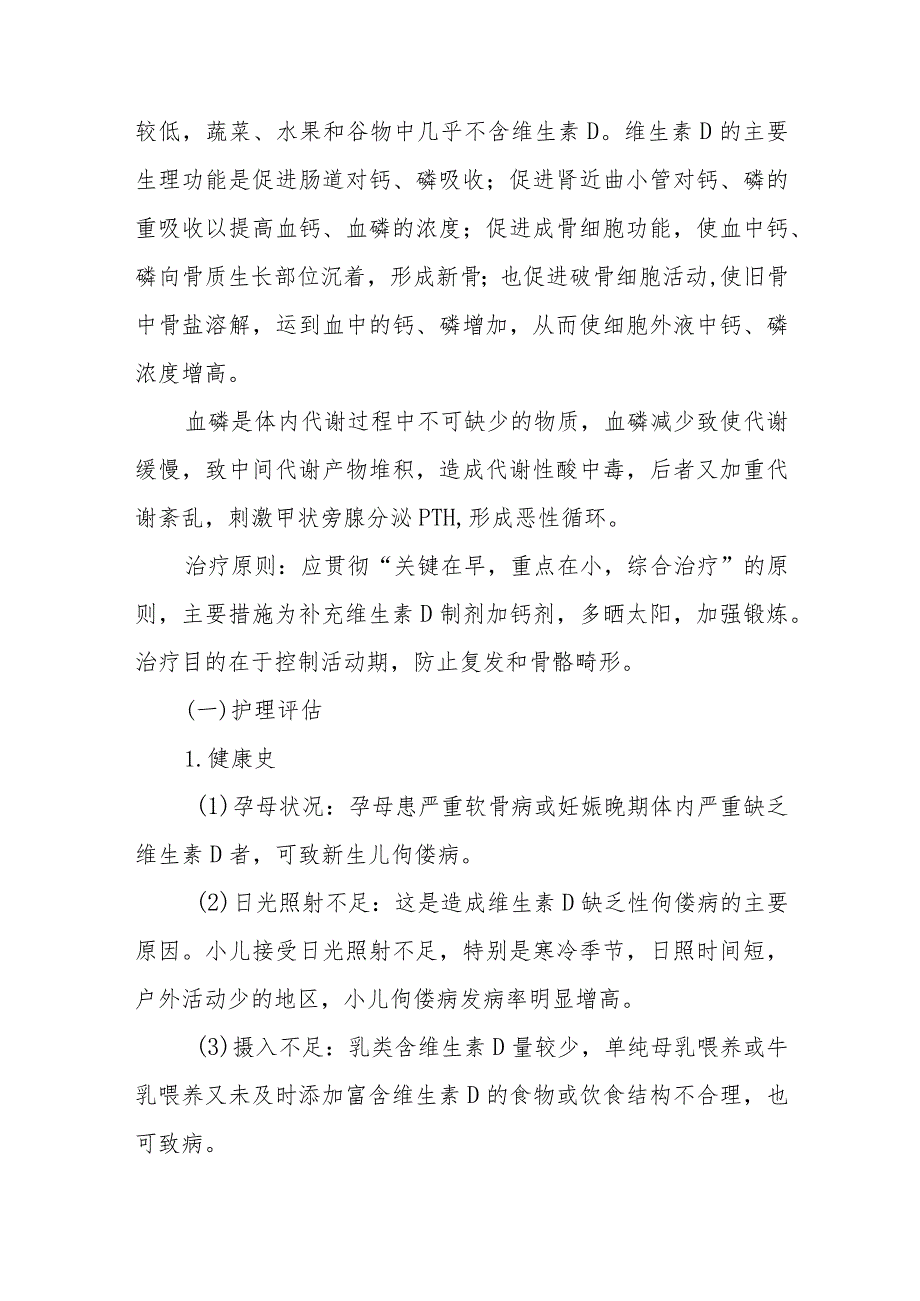 较低，蔬菜、水果和谷物中几乎不含维生素 D。维生素 D 的主要
生理功能是促进肠道对钙、磷吸收；促进肾近曲小管对钙、磷的
重吸收以提高血钙、血磷的浓度；促进成骨细胞功能，使血中钙、
磷向骨质生长部位沉着，形成新骨；也促进破骨细胞活动,使旧骨
中骨盐溶解，运到血中的钙、磷增加，从而使细胞外液中钙、磷
浓度增高。
血磷是体内代谢过程中不可缺少的物质，血磷减少致使代谢
缓慢，致中间代谢产物堆积，造成代谢性酸中毒，后者又加重代
谢紊乱，刺激甲状旁腺分泌 PTH,形成恶性循环。
治疗原则：应贯彻“关键在早，重点在小，综合治疗”的原
则，主要措施为补充维生素 D 制剂加钙剂，多晒太阳，加强锻炼。
治疗目的在于控制活动期，防止复发和骨骼畸形。
(一)护理评估
1.健康史
(1)孕母状况：孕母患严重软骨病或妊娠晚期体内严重缺乏
维生素 D 者，可致新生儿佝偻病。
(2)日光照射不足：这是造成维生素 D 缺乏性佝偻病的主要
原因。小儿接受日光照射不足，特别是寒冷季节，日照时间短，
户外活动少的地区，小儿佝偻病发病率明显增高。
(3)摄入不足：乳类含维生素 D 量较少，单纯母乳喂养或牛
乳喂养又未及时添加富含维生素 D 的食物或饮食结构不合理，也
可致病。